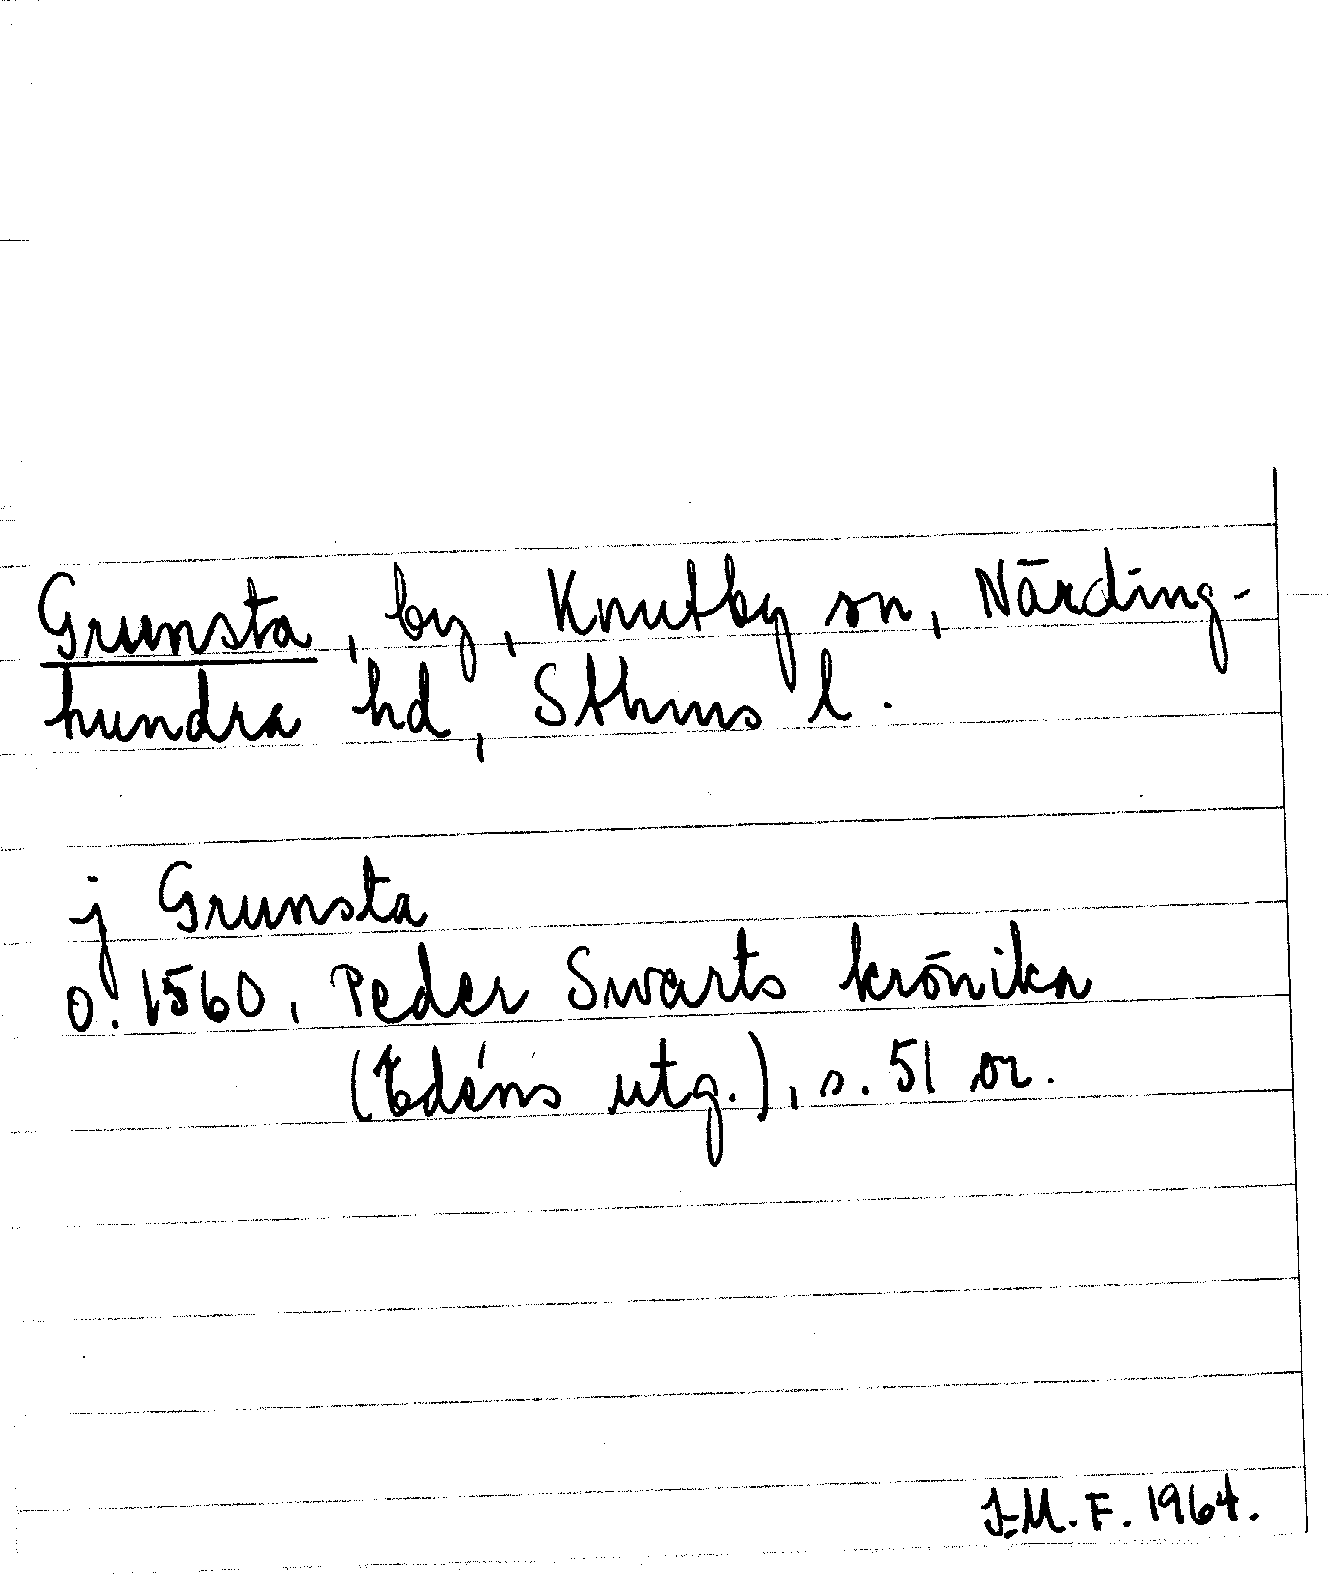 Grunsta, by, Knutby sn, Närding-
hundra hd, Sthms l.
j Grunsta
o. 1560, Peder Swarts krönika
(Edéns utg.), s. 51 or.
I-M. F. 1964.